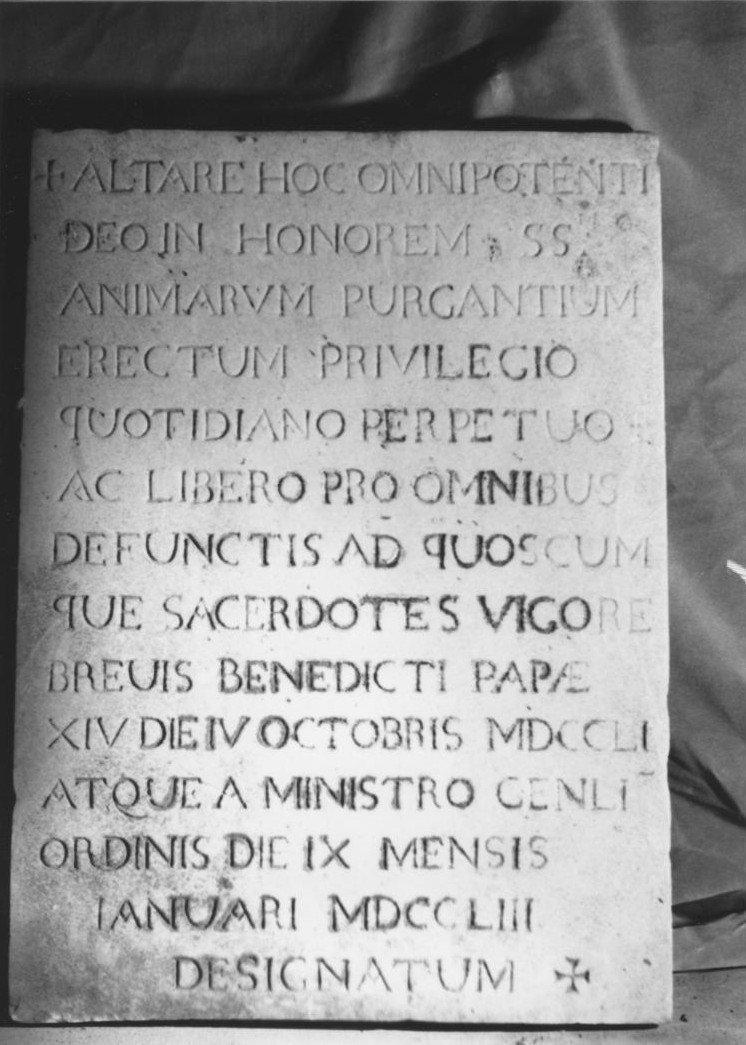 + ALTARE HOC OMNIPOTENTI
DEO IN HONOREM SS.
ANIMARVM PURGANTIUM
ERECTUM PRIVILEGIO
QUOTIDIANO PERPETUO
AC LIBERO PRO OMNIBUS
DEFUNCTIS AD QUOSCUM
QUE SACERDOTES VIGORE
BREUIS BENEDICTI PAPÆ
XIV DIE IV OCTOBRIS MDCCLI
ATQUE A MINISTRO GENLI
ORDINIS DIE IX MENSIS
IANUARI MDCCLIII
DESIGNATUM ✠